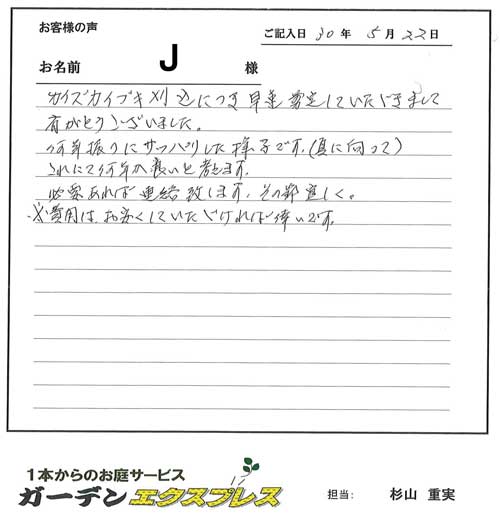 お客様の声
ご記入日 30年 5月 22日
お名前 J 様
カイズカイブキ刈込につき早速剪定していただきまして
有がとうございました。
何年振りにサッパリした様子です。(夏に向って)
これにて何年か良いと考えます。
必要あれば連絡致します。その節宜しく。
※費用はお安くしていただければ倖いです。
1本からのお庭サービス
ガーデンエクスプレス
担当: 杉山 重実